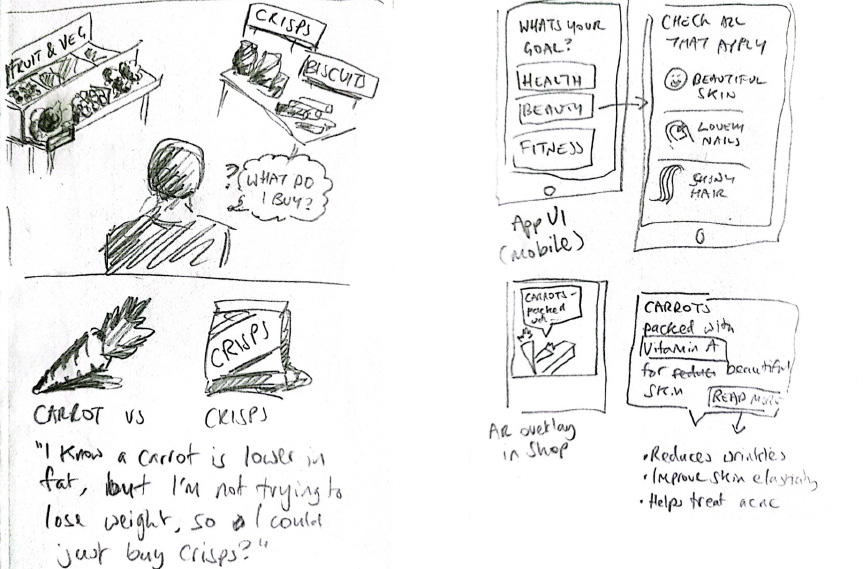 FRUIT & VEG
CRISPS
BISCUITS
? WHAT DO
I BUY?
CRISPS
CARROT VS CRISPS
"I know a carrot is lower in
fat, but I'm not trying to
lose weight, so I could
just buy crisps?"
WHATS YOUR
GOAL?
HEALTH
BEAUTY
FITNESS
App UI
(mobile)
CHECK ALL
THAT APPLY
BEAUTIFUL
SKIN
LOVELY
NAILS
SHINY
HAIR
CARROTS -
packed
with...
AR overlay
in shop
CARROTS
packed with
Vitamin A
for reduce beautiful
skin
READ MORE
• Reduces wrinkles
• Improve skin elasticity
• Helps treat acne